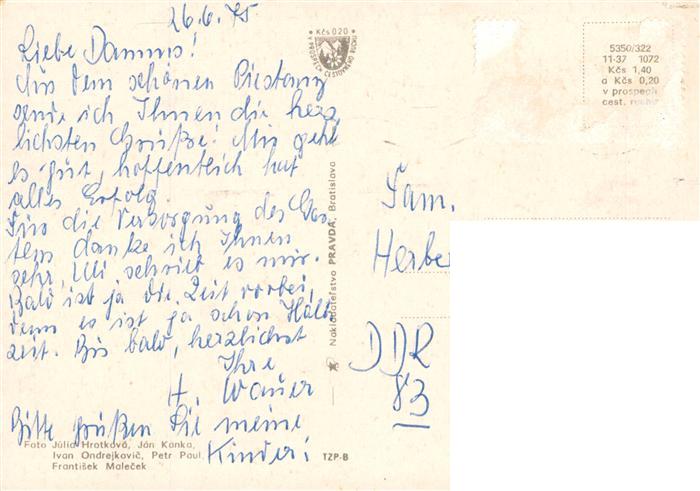 26.6.75
Liebe Dammis!
Aus dem schönen Piestany
sende ich Ihnen die herz
lichsten Grüße! Mir geht
es gut, hoffentlich hat
alles Erfolg.
Für die Versorgung des Gar
tens danke ich Ihnen
sehr, Uli schrieb es mir.
Bald ist ja die Zeit vorbei,
denn es ist ja schon Halb
zeit. Bis bald, herzlichst
Ihre
H. Wauer
Bitte grüßen Sie meine
Kinder!
Foto Júlia Hrotková, Ján Kanka,
Ivan Ondrejkovič, Petr Paul,
František Maleček
TZP-B
Kčs 0.20
Nakladateľstvo PRAVDA, Bratislava
5350/322
11-37 1072
Kčs 1,40
a Kčs 0,20
v prospech
cest. ruchu
Fam.
Herbe
DDR
83